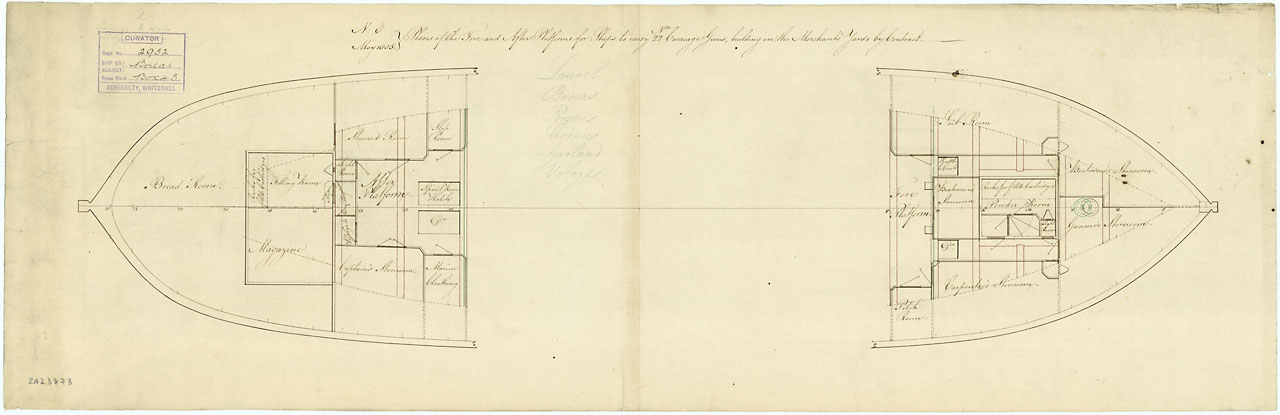 CURATOR
Regd. No. 2932
SHIP OR SUBJECT: Boreas
Press Mark Box 43
ADMIRALTY, WHITEHALL
No 3
May 1805
Plans of the Fore and After Platforms for Ships to carry 22 Carriage Guns, building in the Merchants Yards by Contract
Laurel
Boreas
Comus
Garland
Volage
Bread Room
Filling Room
Magazine
Light Room
Steward Room
Slop Room
After Platform
Spirit Room Hatch
Do
Captain's Storeroom
Marine Clothing
Sail Room
Fore Platform
Boatswain's Storeroom
Powder Room
Boatswain's Storeroom
Gunner's Storeroom
Carpenter's Storeroom
Pitch Room
ZAZ3873